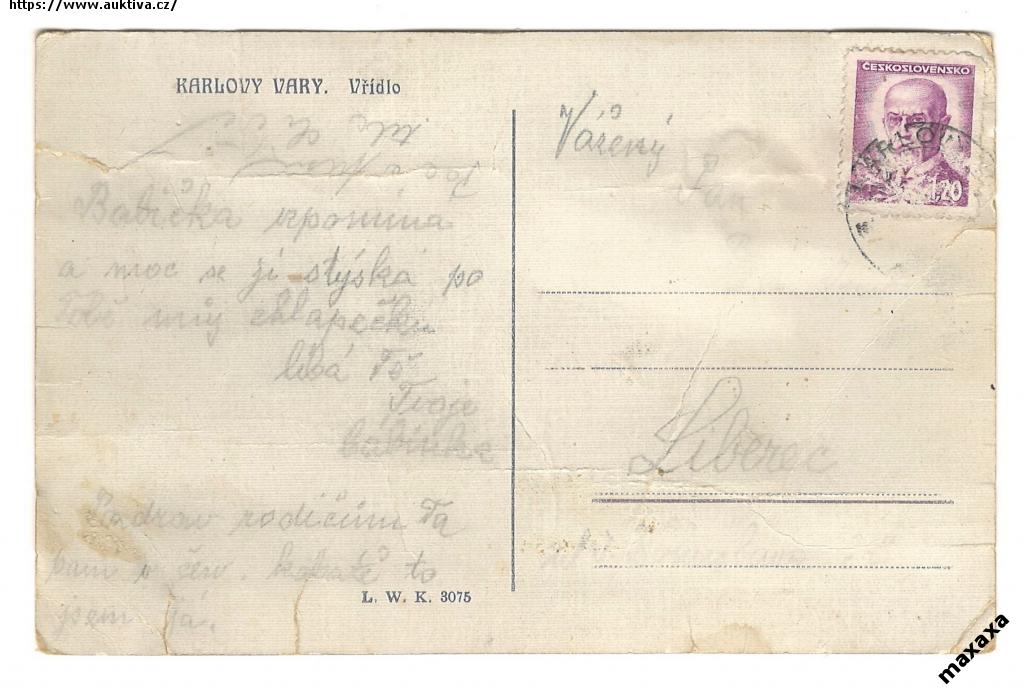 https://www.auktiva.cz/
KARLOVY VARY. Vřídlo
Babička vzpomíná
a moc se jí stýská po
Tobě můj chlapečku
líbá Tě
Tvoje
babinka
Pozdrav rodičům Ta
v červ. kabátě to
jsem já.
L. W. K. 3075
Vážený
Pan
Liberec
ČESKOSLOVENSKO
1.20
KARLOVY
maxaxa